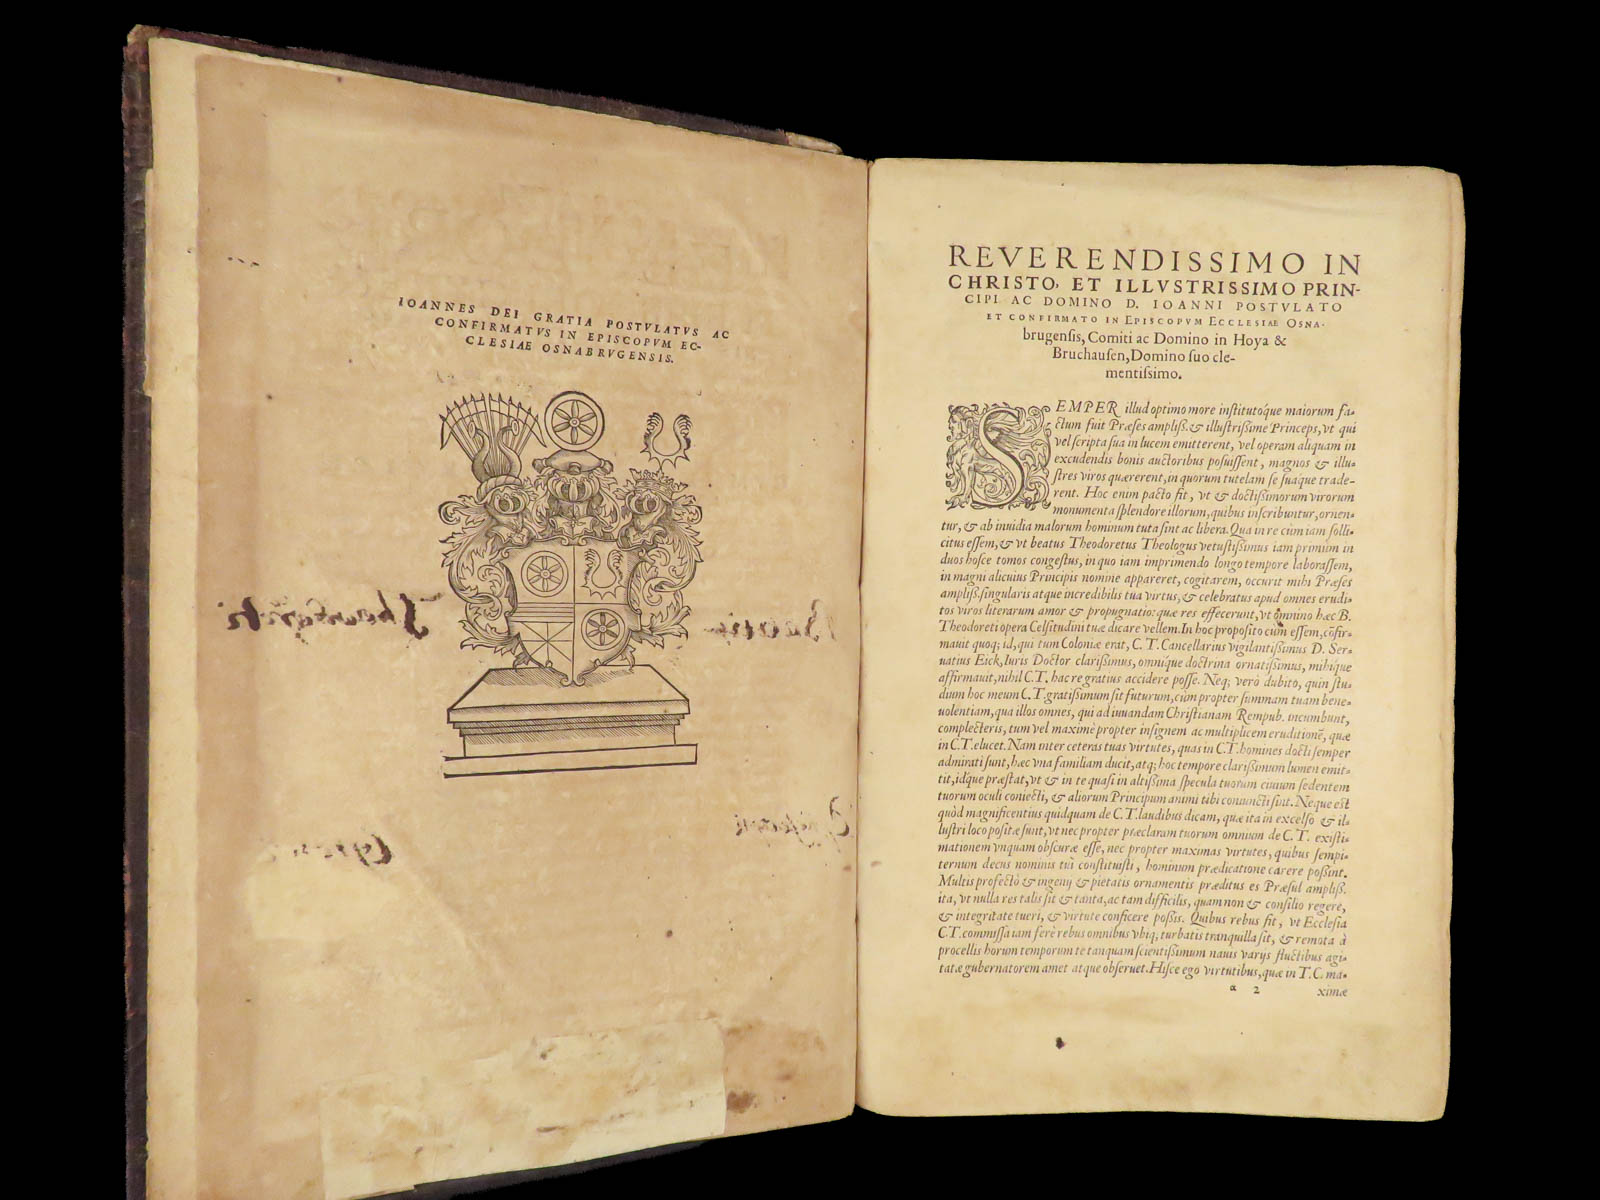 IOANNES DEI GRATIA POSTVLATVS AC
CONFIRMATVS IN EPISCOPVM EC-
CLESIAE OSNABRVGENSIS.
REVERENDISSIMO IN
CHRISTO, ET ILLVSTRISSIMO PRIN-
CIPI AC DOMINO D. IOANNI POSTVLATO
ET CONFIRMATO IN EPISCOPVM ECCLESIAE OSNA-
brugenſis, Comiti ac Domino in Hoya &
Bruchauſen, Domino ſuo cle-
mentiſsimo.
SEMPER illud optimo more institutoq́ue maiorum fa-
ctum fuit Præses ampliß. & illuſtrißime Princeps, vt qui
vel ſcripta ſua in lucem emitterent, vel operam aliquam in
excudendis bonis auctoribus poſuiſſent, magnos & illu-
ſtres viros quærerent, in quorum tutelam ſe ſuaque trade-
rent. Hoc enim pacto fit, vt & doctißimorum virorum
monumenta ſplendore illorum, quibus inſcribuntur, ornen-
tur, & ab inuidia malorum hominum tuta ſint ac libera. Qua in re cùm iam ſolli-
citus eſſem, & vt beatus Theodoretus Theologus vetuſtißimus iam primùm in
duos hoſce tomos congeſtus, in quo iam imprimendo longo tempore laboraſſem,
in magni alicuius Principis nomine appareret, cogitarem, occurit mihi Præſes
ampliß. ſingularis atque incredibilis tua virtus, & celebratus apud omnes erudi-
tos viros literarum amor & propugnatio: quæ res effecerunt, vt omnino hæc B.
Theodoreti opera Celſitudini tuæ dicare vellem. In hoc propoſito cùm eſſem, cōfir-
mauit quoq; id, qui tum Coloniæ erat, C. T. Cancellarius vigilantißimus D. Ser-
uatius Eick, Iuris Doctor clarißimus, omniq́ue doctrina ornatißimus, mihiq́ue
affirmauit, nihil C. T. hac re gratius accidere poſſe. Neq; verò dubito, quin ſtu-
dium hoc meum C. T. gratißimum ſit futurum, cùm propter ſummam tuam bene-
uolentiam, qua illos omnes, qui ad iuuandam Chriſtianam Rempub. incumbunt,
complecteris, tum vel maximè propter inſignem ac multiplicem eruditionē, quæ
in C. T. elucet. Nam inter ceteras tuas virtutes, quas in C. T. homines docti ſemper
admirati ſunt, hæc vna familiam ducit, atq; hoc tempore clarißimum lumen emit-
tit, idq́ue præſtat, vt & in te quaſi in altißima ſpecula tuorum ciuium ſedentem
tuorum oculi coniecti, & aliorum Principum animi tibi coniuncti ſint. Neque est
quòd magnificentius quidquam de C. T. laudibus dicam, quæ ita in excelſo & il-
luſtri loco poſitæ ſunt, vt nec propter præclaram tuorum omnium de C. T. exiſti-
mationem vnquam obſcuræ eſſe, nec propter maximas virtutes, quibus ſempi-
ternum decus nominis tui conſtituiſti, hominum prædicatione carere poßint.
Multis profectò & ingenij & pietatis ornamentis præditus es Præſul ampliß.
ita, vt nulla res talis ſit & tanta, ac tam difficilis, quam non & conſilio regere,
& integritate tueri, & virtute conficere poßis. Quibus rebus fit, vt Eccleſia
C. T. commiſſa iam ferè rebus omnibus vbiq; turbatis tranquilla ſit, & remota à
procellis horum temporum te tanquam ſcientißimum nauis varijs fluctibus agi-
tatæ gubernatorem amet atque obſeruet. Hiſce ego virtutibus, quæ in T. C. ma-
a 2 ximæ